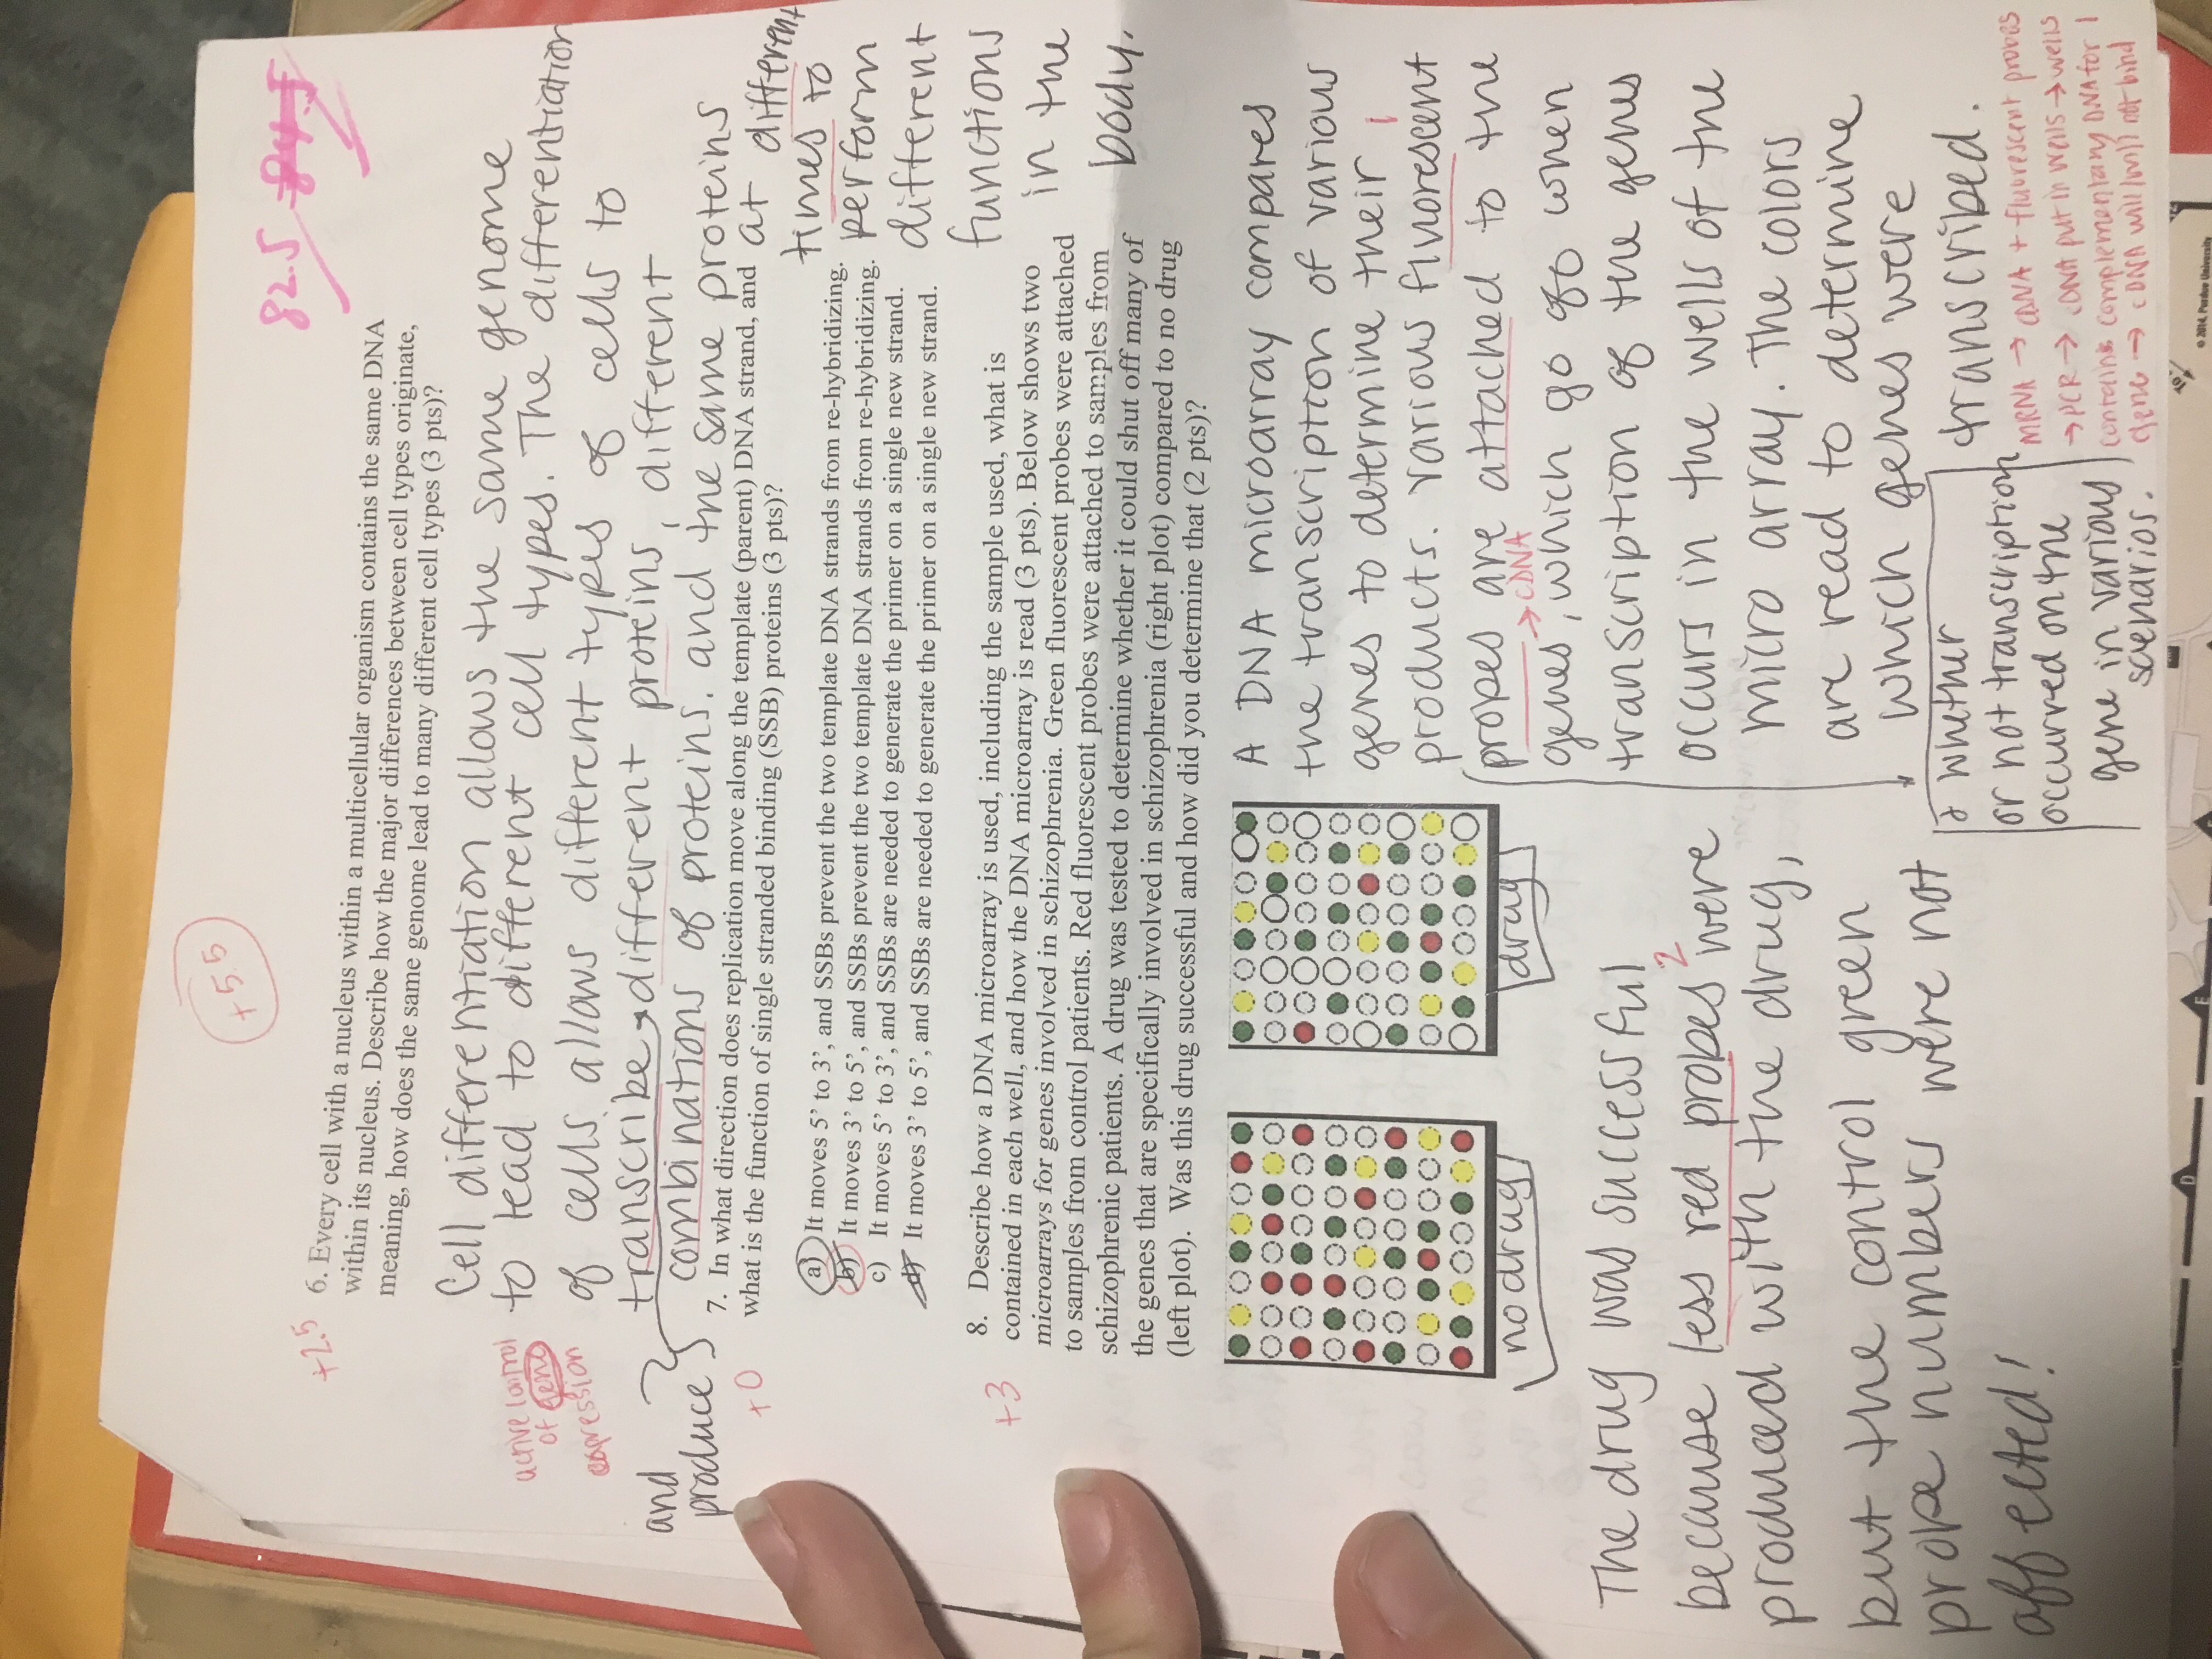 +5.5
82.5 84.5
+2.5
6. Every cell with a nucleus within a multicellular organism contains the same DNA
within its nucleus. Describe how the major differences between cell types originate,
meaning, how does the same genome lead to many different cell types (3 pts)?
Cell differentiation allows the same genome
to lead to different cell types. The differentiation
of cells allows different types of cells to
transcribe different proteins, different
combinations of proteins. and the same proteins
at different
times to
perform
different
functions
in the
body.
active control
of gene
expression
and
produce
+0
7. In what direction does replication move along the template (parent) DNA strand, and
what is the function of single stranded binding (SSB) proteins (3 pts)?
a) It moves 5' to 3', and SSBs prevent the two template DNA strands from re-hybridizing.
b) It moves 3' to 5', and SSBs prevent the two template DNA strands from re-hybridizing.
c) It moves 5' to 3', and SSBs are needed to generate the primer on a single new strand.
d) It moves 3' to 5', and SSBs are needed to generate the primer on a single new strand.
+3
8. Describe how a DNA microarray is used, including the sample used, what is
contained in each well, and how the DNA microarray is read (3 pts). Below shows two
microarrays for genes involved in schizophrenia. Green fluorescent probes were attached
to samples from control patients. Red fluorescent probes were attached to samples from
schizophrenic patients. A drug was tested to determine whether it could shut off many of
the genes that are specifically involved in schizophrenia (right plot) compared to no drug
(left plot). Was this drug successful and how did you determine that (2 pts)?
no drug
drug
The drug was successful
because less red probes were
2
produced with the drug,
but the control green
probe numbers were not
affected!
A DNA microarray compares
the transcription of various
genes to determine their
1
products. Various fluorescent
probes are attached to the
→ cDNA
genes, which go off when
transcription of the genes
occurs in the wells of the
micro array. The colors
are read to determine
which genes were
transcribed.
& whether
or not transcription
occurred on the
gene in various
scenarios.
MRNA → cDNA + fluorescent probes
→ PCR → cDNA put in wells → wells
contains complementary DNA for 1
gene → cDNA will/will not bind
D
E
To
© 2014, Purdue University